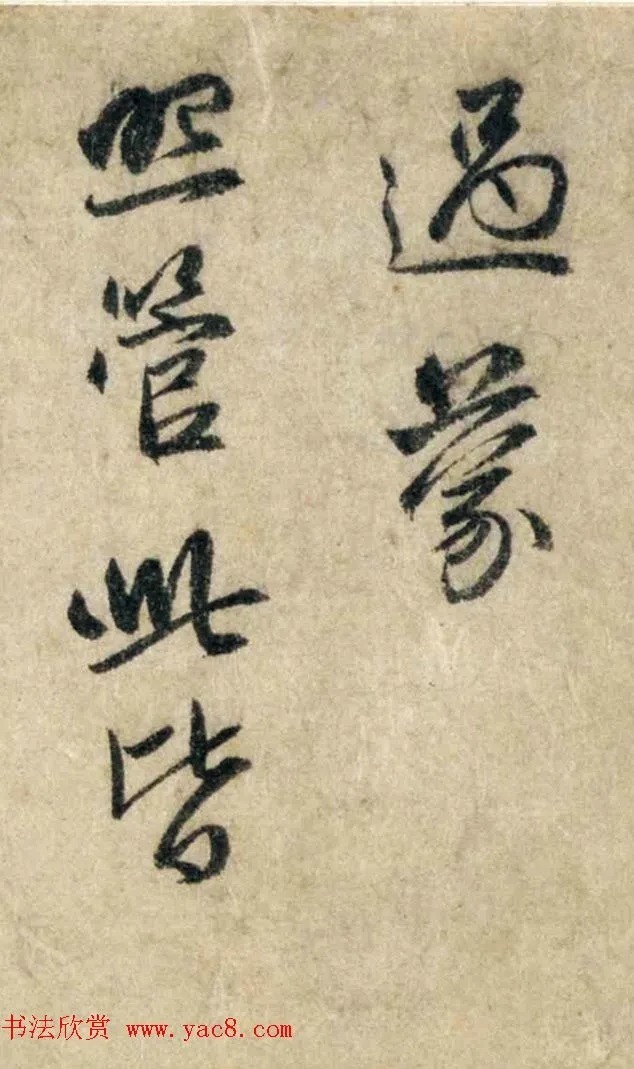 過蒙
照管此皆
书法欣赏 www.yac8.com